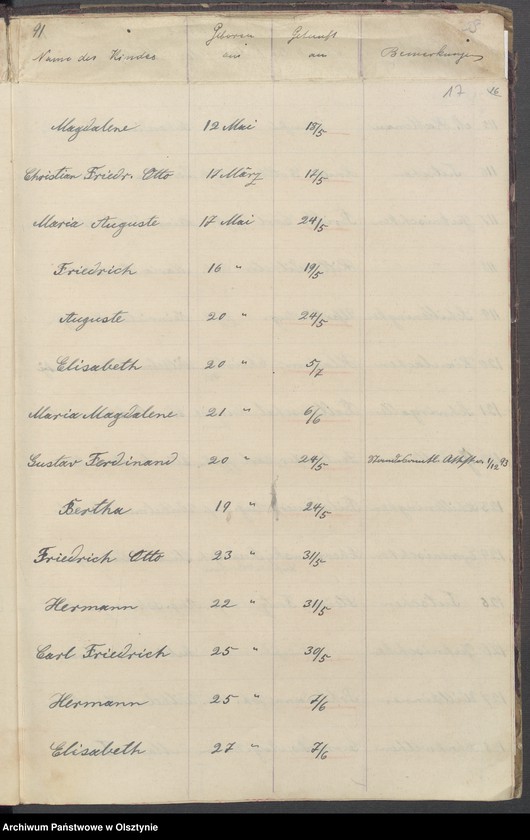 91.
Name des Kindes Geboren am Getauft am Bemerkungen
17 16
Magdalene 12 Mai 18/5
Christian Friedr. Otto 17 März 12/5
Maria Auguste 17 Mai 24/5
Friedrich 16 " 19/5
Auguste 20 " 24/5
Elisabeth 20 " 5/7
Maria Magdalene 21 " 6/6
Gustav Ferdinand 20 " 24/5 1/12 93
Bertha 19 " 24/5
Friedrich Otto 23 " 31/5
Hermann 22 " 31/5
Carl Friedrich 25 " 30/5
Hermann 25 " 7/6
Elisabeth 27 " 7/6
Archiwum Państwowe w Olsztynie